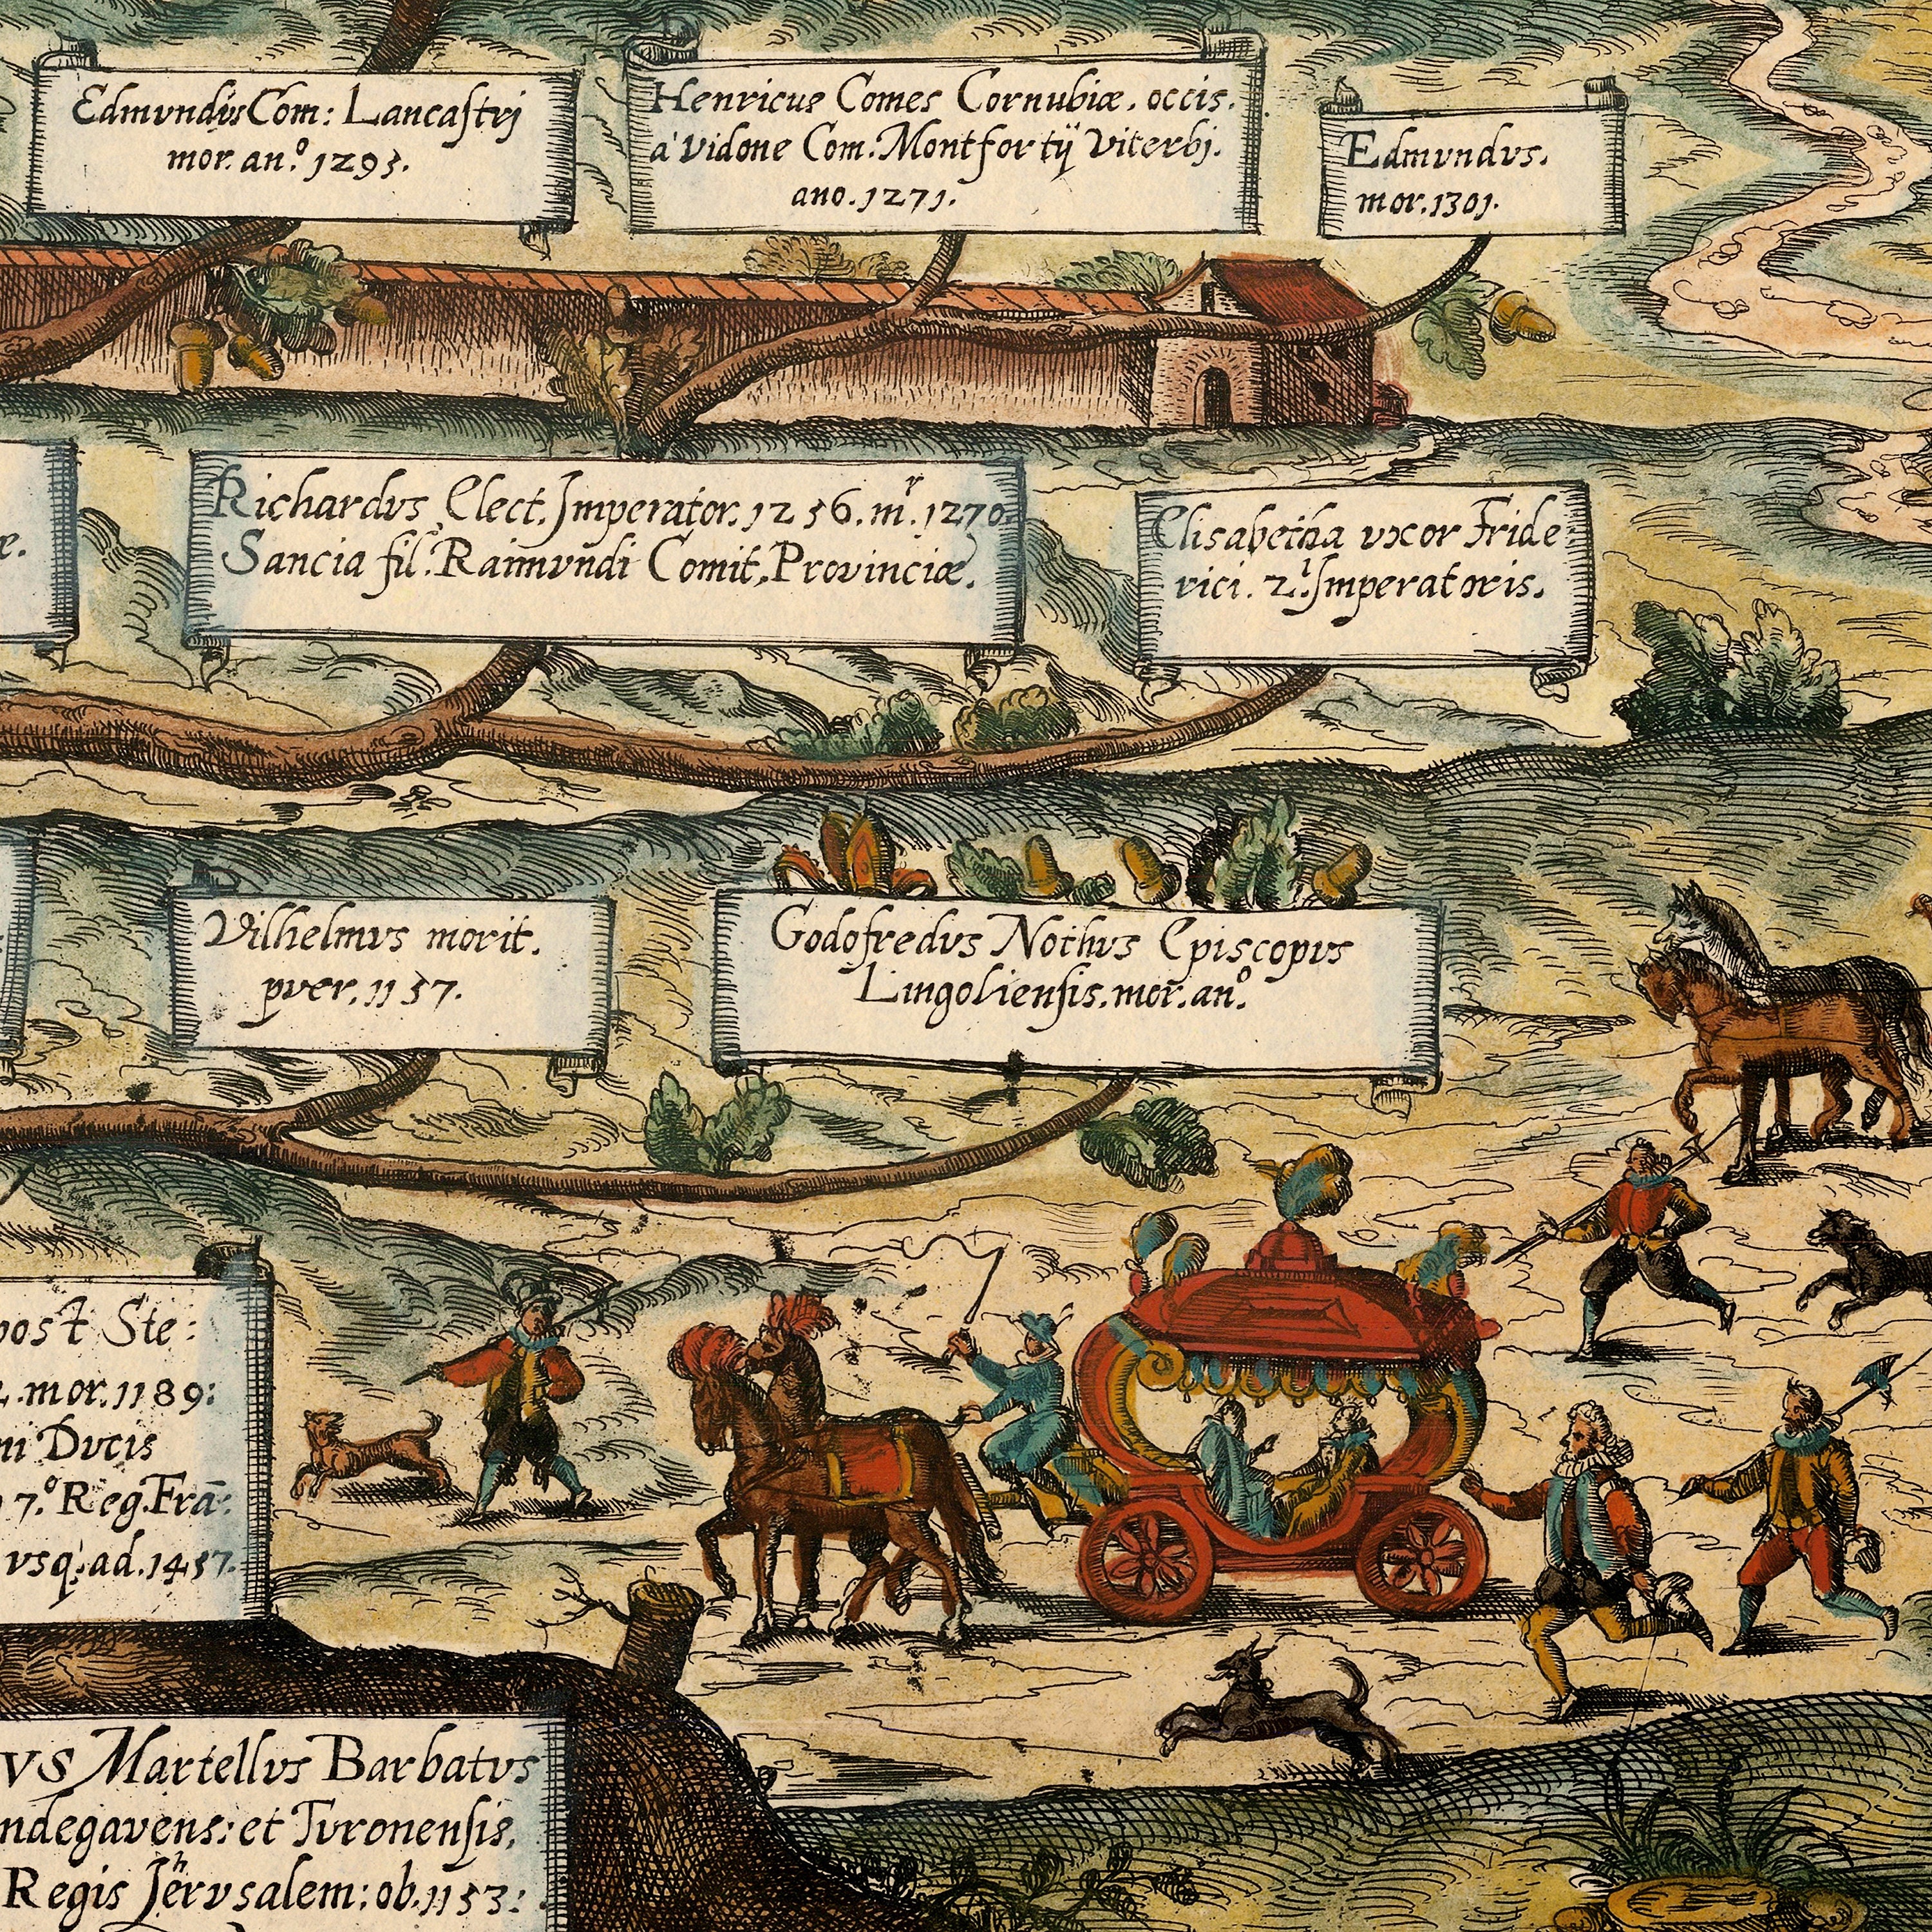 Edmvndvs Com: Lancastrj
mor. an.º 1293.
Henricus Comes Cornubiæ. occis.
a' Vidone Com: Montfortij Viterbj.
ano. 1271.
Edmvndvs.
mor. 1301.
æ.
Richardvs Elect. Imperator. 1256. m.r 1270.
Sancia fil: Raimvndi Comit, Provinciæ.
Elisabetha vxor Fride:
rici. 2.i Imperatoris.
Vilhelmvs morit.
pver. 1157.
Godofredvs Nothvs Episcopvs
Lingoliensis. mor. an.º
post Ste:
mor. 1189:
ni Dvcis
7.º Reg. Frā:
vsq; ad. 1457.
vs Martellvs Barbatvs
ndegavens: et Tvronensis,
Regis Jhervsalem: ob. 1153: